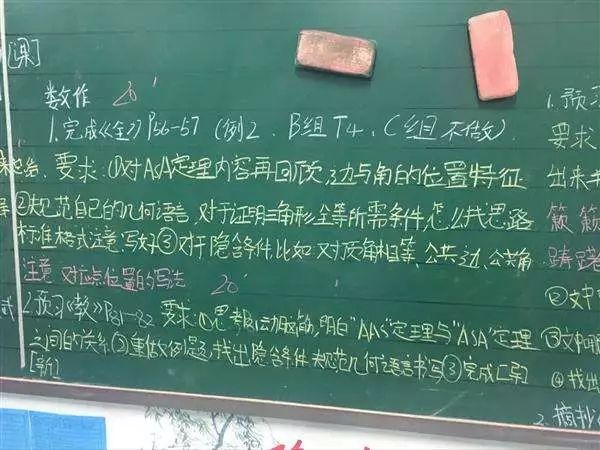 [课]
数作 20'
1.完成《全》P56-57 (例2、B组T4、C组不做).
要求:①对ASA定理内容再回顾,边与角的位置特征
②规范自己的几何语言,对于证明三角形全等所需条件,怎么找思路
标准格式注意写好③对于隐含条件,比如对顶角相等、公共边、公共角
注意 对应点位置的写法 20'
2.预习《教》P81-82 要求:①思考,动脑筋,明白"AAS"定理与"ASA"定理
之间的关系②重做例题,找出隐含条件,规范几何语言书写③完成汇
[新]
1.预习
要求
出来
簌簌
踌躇
②文中
③文中
④找出
2.摘抄